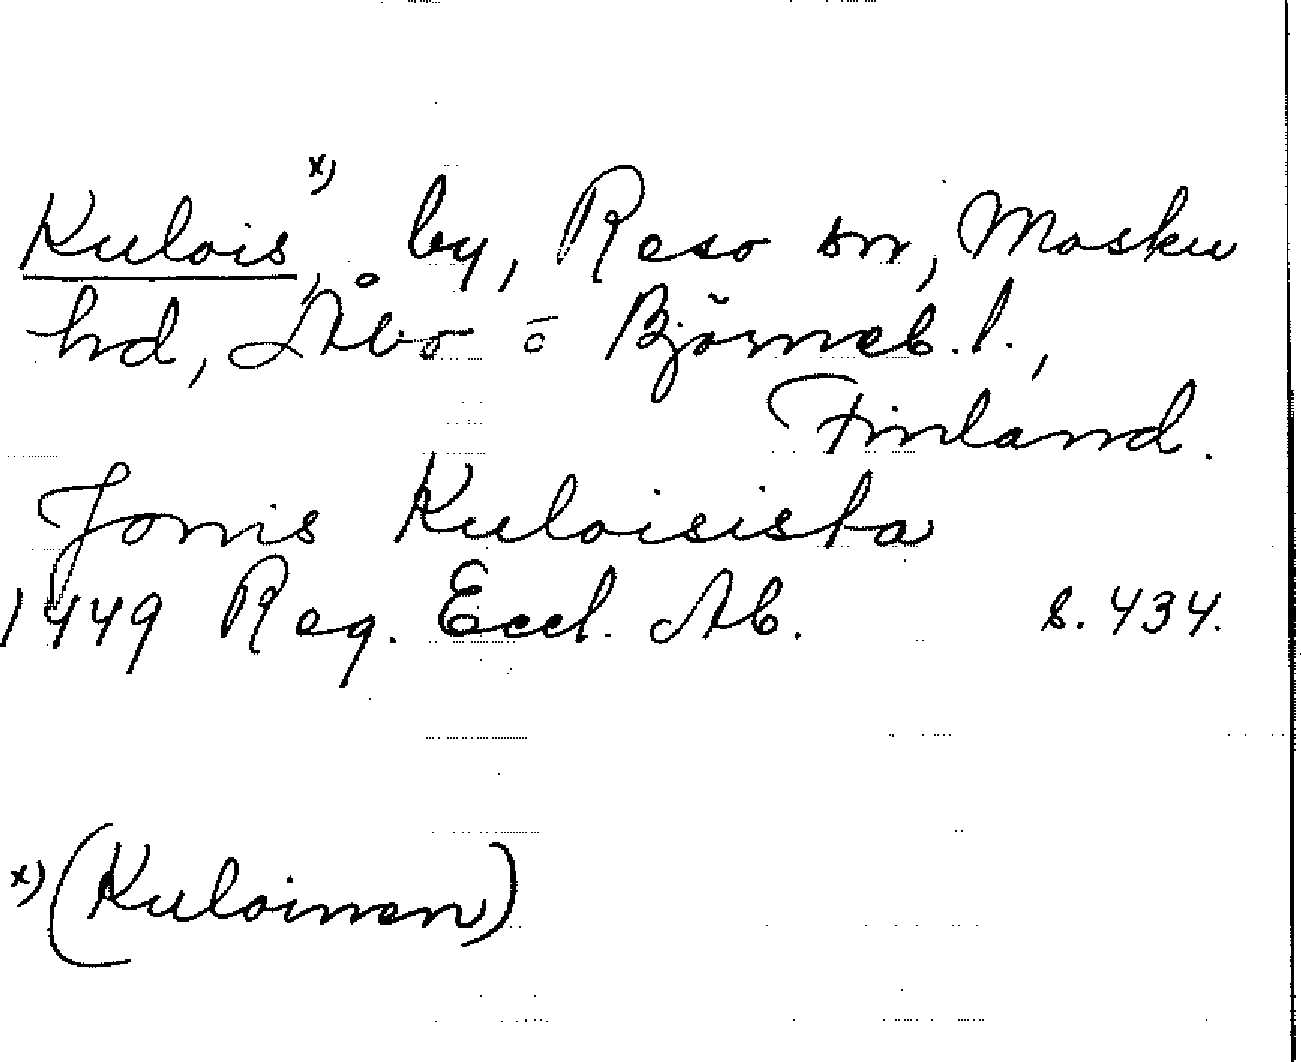 Kulois x), by, Reso sn, Masku
hd, Åbo o Björneb. l.,
Finland.
Jonis Kuloisista
1449 Reg. Eccl. Ab. s. 434.
x) (Kuloinen)